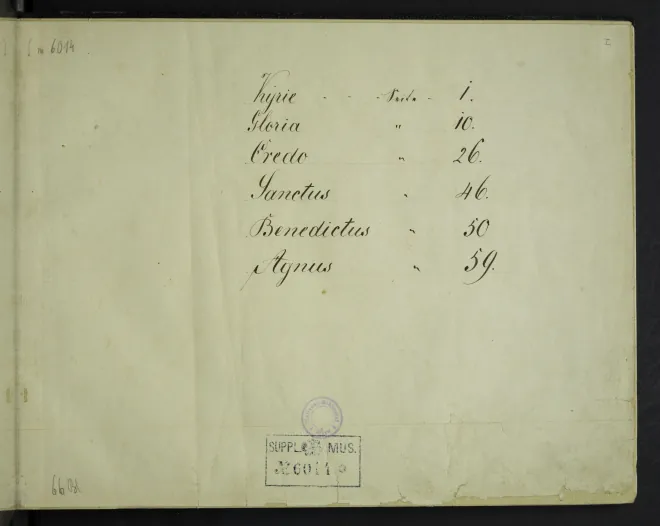 6014
I
Kyrie - - - Seite - 1.
Gloria " 10.
Credo " 26.
Sanctus " 46.
Benedictus " 50
Agnus " 59.
SUPPL. MUS.
No 6014